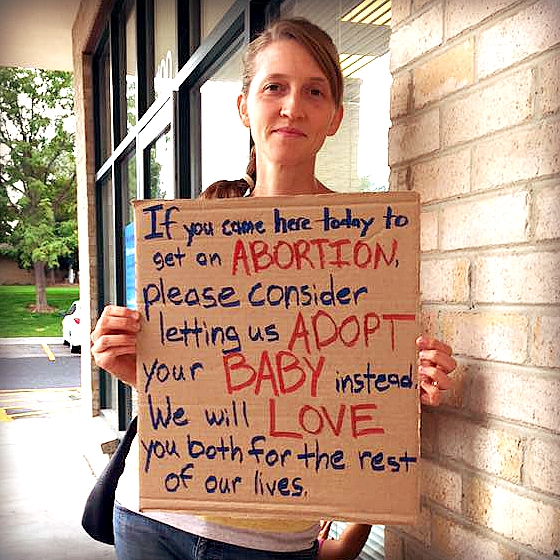 If you came here today to
get an ABORTION,
please consider
letting us ADOPT
your BABY instead.
We will LOVE
you both for the rest
of our lives.